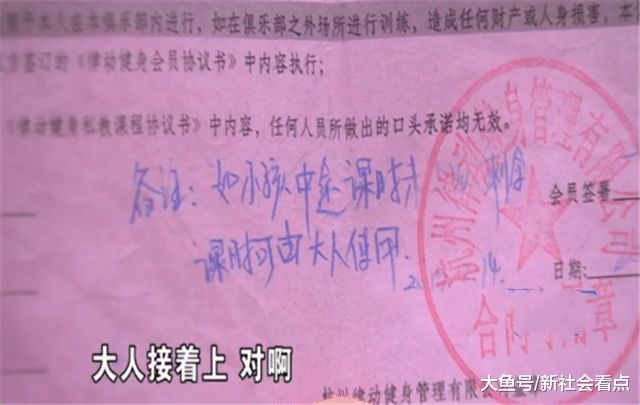 限于本人在本俱乐部内进行，如在俱乐部之外场所进行训练，造成任何财产或人身损害，本
方签订的《律动健身会员协议书》中内容执行；
《律动健身私教课程协议书》中内容，任何人员所做出的口头承诺均无效。
备注：如小孩中途课时未 剩余
会员签署
课时可由大人使用.
日期：
杭州律动健身管理有限公司
合同 章
大人接着上 对啊
杭州律动健身管理有限
大鱼号/新社会看点